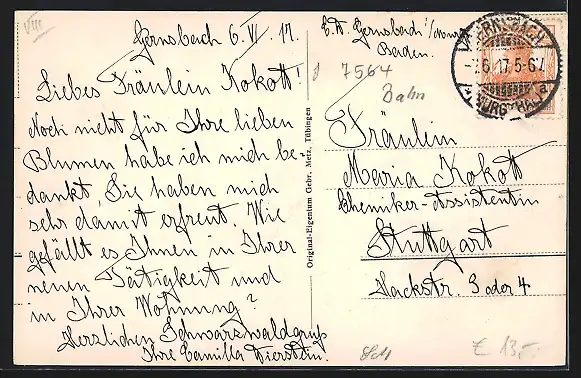 VIII
Gernsbach 6. VI. 17.
Liebes Fräulein Kokott!
Noch nicht für Ihre lieben
Blumen habe ich mich be-
dankt, Sie haben mich
sehr damit erfreut. Wie
gefällt es Ihnen in Ihrer
neuen Tätigkeit und
in Ihrer Wohnung?
Herzlichen Schwarzwaldgruß
Ihre Camilla Dierstein.
Original-Eigentum Gebr. Metz, Tübingen
Gernsbach i/Murg
Baden.
GERNSBACH
6.17.5-6
(MURGTHAL)
7564
Bahn
Fräulein
Maria Kokott
Chemiker-Assistentin
Stuttgart
Hackstr. 3 oder 4
13.-